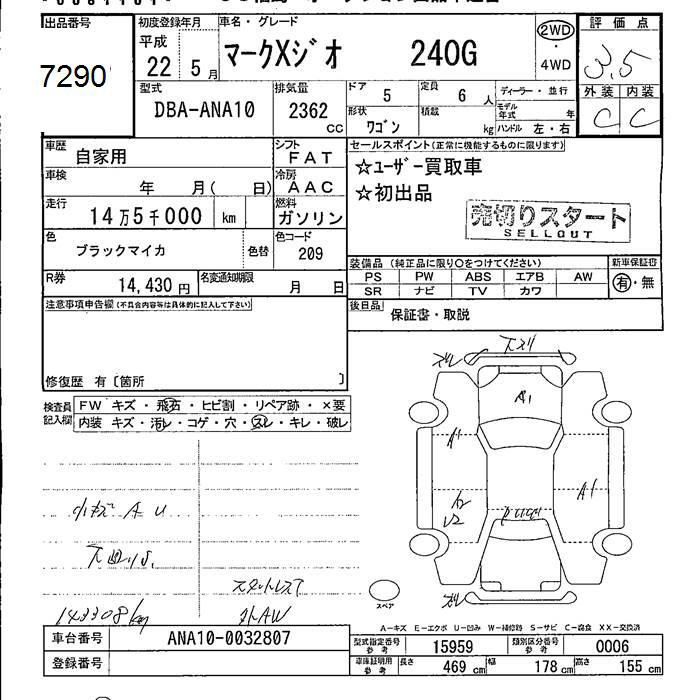 出品番号 初度登録年月 車名・グレード 評価点
7290 平成 22 5月 マークXジオ 240G 2WD ・ 4WD 3.5
型式 排気量 ドア 5 定員 6 人 ディーラー・並行 外装 内装
DBA-ANA10 2362 cc 形状 ワゴン 積載 kg モデル年式 年 ハンドル 左・右 C C
車歴 自家用 シフト FAT セールスポイント(正常に機能するものに限ります)
車検 年 月( 日) 冷房 AAC ☆ユーザー買取車
走行 14万5千000 km 燃料 ガソリン ☆初出品
売切りスタート
SELLOUT
色 ブラックマイカ 色替 色コード 209
装備品(純正品に限り〇をつけてください) 新車保証書
R券 14,430 円 名変通知期限 月 日 PS PW ABS エアB AW 有・無
SR ナビ TV カワ
注意事項申告欄(不具合内容等は具体的に記入して下さい) 後日品 保証書・取説
修復歴 有〔箇所 〕
検査員記入欄 FW キズ・飛石・ヒビ割・リペア跡・×要
内装 キズ・汚レ・コゲ・穴・スレ・キレ・破レ
スレ
A1
A1
A1
U2
小キズ A U
スタットレス
143308km 外AW
スペア
A-キズ E-エクボ U-凹み W-補修跡 S-サビ C-腐食 XX-交換済
車台番号 ANA10-0032807 型式指定番号 参考 15959 類別区分番号 参考 0006
登録番号 車庫証明用 参考 長さ 469 cm 幅 178 cm 高さ 155 cm